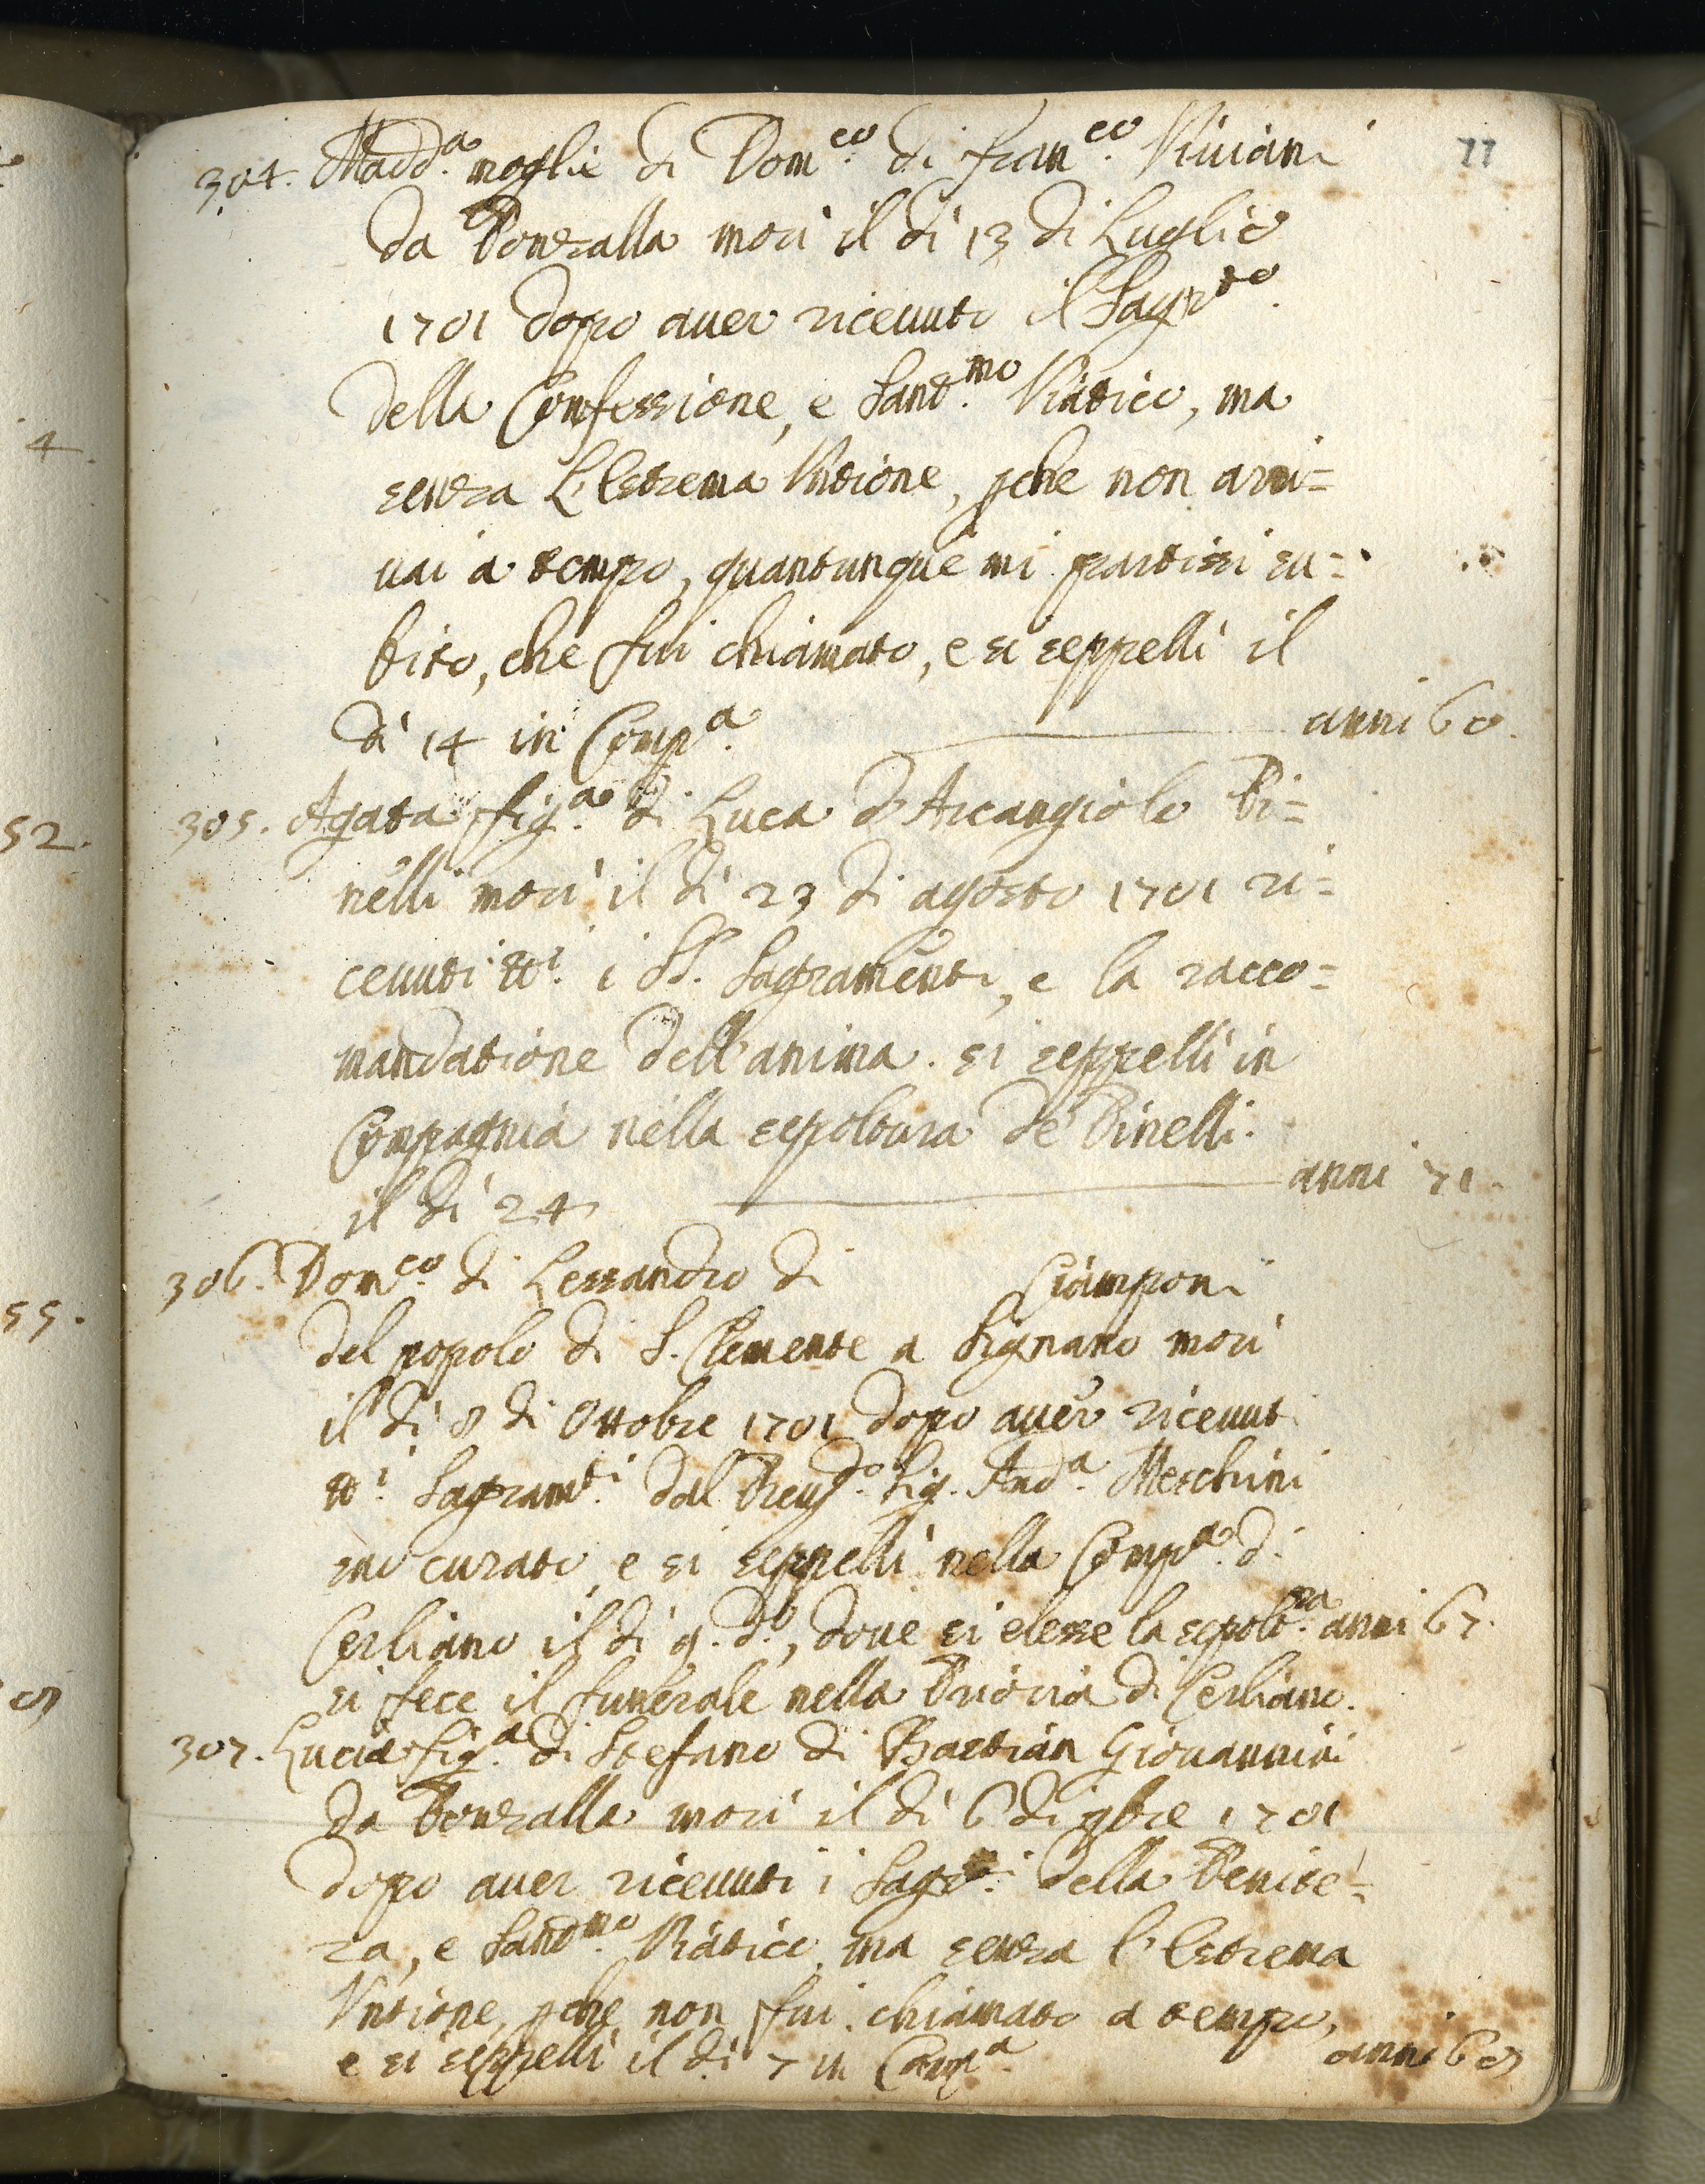 77
304. Madd.a moglie di Dom.co di Fran.co Viviani
da Ponzalla morì il dì 13 di Luglio
1701 dopo auer riceuuto il Sagr.to
della Confessione, e Sant.mo Viatico, ma
senza l'Estrema Untione, pche non arri=
uai a tempo, quantunque mi partissi su=
bito, che fui chiamato, e si seppellì il
dì 14 in Comp.a anni 60.
305. Agata fig.a di Luca d'Arcangiolo Pi=
nelli morì il dì 23 di agosto 1701 ri=
ceuuti tt.i i SS. Sagramenti, e la racco=
mandatione dell'anima. si seppellì in
Compagnia nella sepoltura de' Pinelli.
il dì 24 anni 71.
306. Dom.co di Lessandro di Ciamponi
del popolo di S. Clemente a Signano morì
il dì 8 di Ottobre 1701 dopo auer riceuut
tt.i Sagram.ti dal Sig. And.a Meschini
suo curato, e si seppellì nella Comp.a di
Cerliano il dì 9. d.o, doue si elesse la sepolt.ra anni 67.
si fece il funerale nella Prioria di Cerliano.
307. Lucia fig.a di Stefano di Bastian Giouannini
da Ponzalla morì il dì 6 di 9bre 1701
dopo auer riceuuti i Sagr.ti della Penite=
za, e Sant.mo Viatico, ma senza l'Estrema
Untione, pche non fui chiamato a tempo,
e si seppellì il dì 7 in Comp.a anni 60
4.
52.
55.